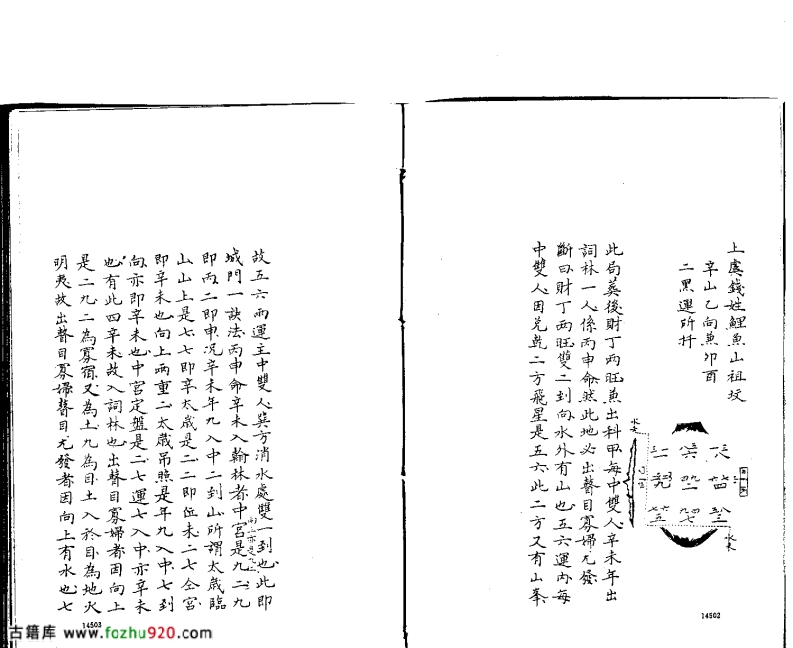 上虞錢姓鯉魚山祖坟
辛山乙向兼卯酉
二黑運所扦
水大
水大
此局葬後財丁兩旺兼出科甲每中雙人辛未年出
詞林一人係丙申命然此地必出瞽目寡婦尤發
斷曰財丁兩旺雙二到向水外有山也五六運內每
中雙人因兌乾二方飛星是五六此二方又有山峯
14502
故五六兩運主中雙人巽方消水處雙一到也此即
城門一訣法丙申命辛未入翰林者中宮是九二九
即丙二即申況辛未年九入中二到山所謂太歲臨
山山上是七七即辛太歲是二二即位未二七仝宮
即辛未也向上兩重二太歲吊照是年九入中七到
向亦即辛未也中宮定盤是二七運七入中亦辛未
也有此四辛未故入詞林也出瞽目寡婦者因向上
是二九二為寡宿又為土九為目土入於目為地火
明夷故出瞽目寡婦瞽目尤發者因向上有水也七
14503
古籍库 www.fozhu920.com